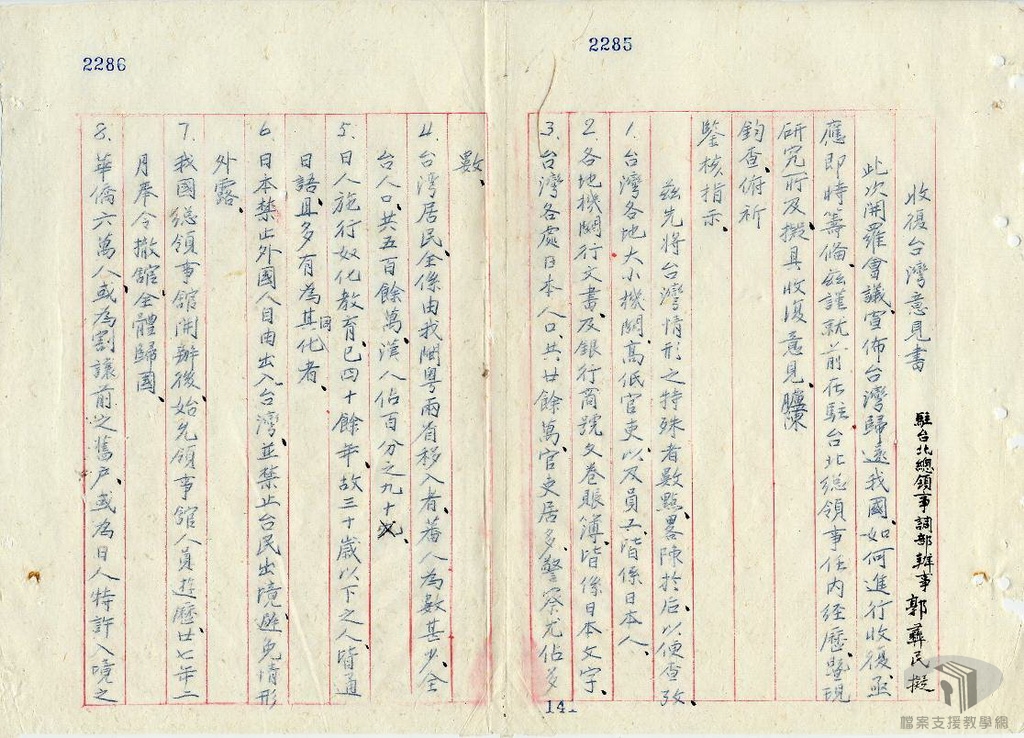 2285
收復台灣意見書
駐台北總領事調部辦事郭彝民擬
此次開羅會議宣佈台灣歸還我國、如何進行收復、亟
應即時籌備、茲謹就前在駐台北總領事任內經歷、暨現
研究所及、擬具收復意見、臚陳
鈞查、俯祈
鑒核指示、
茲先將台灣情形之特殊者數點、畧陳於后、以便查攷、
1. 台灣各地大小機関、高低官吏、以及員工、皆係日本人、
2. 各地機関行文書、及銀行商號文卷賬簿、皆係日本文字、
3. 台灣各處日本人口、共廿餘萬、官吏居多、警察尤佔多
141
2286
數、
4. 台湾居民全係由我閩粵兩省移入者、蕃人為數甚少、全
台人口、共五百餘萬、漢人佔百分之九十、
5. 日人施行奴化教育、已四十餘年、故三十歲以下之人、皆通
日語、且多有為其同化者、
6. 日本禁止外國人自由出入台灣、並禁止台民出境、避免情形
外露、
7. 我國總領事館開辦後、始先領事館人員遊歷、廿七年二
月奉令撤館、全體歸國、
8. 華僑六萬人、或為割讓前之舊户、或為日人特許入境之
檔案支援教學網